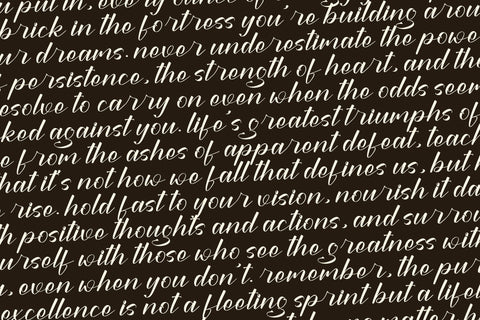 u put in, every ounce of
brick in the fortress you're building arou
ur dreams. never underestimate the powe
f persistence, the strength of heart, and the
esolve to carry on even when the odds seem
ked against you. life's greatest triumphs of
e from the ashes of apparent defeat, teach
hat it's not how we fall that defines us, but h
rise. hold fast to your vision, nourish it da
h positive thoughts and actions, and surrou
urself with those who see the greatness wit
u, even when you don't. remember, the pur
excellence is not a fleeting sprint but a lifel
matter h